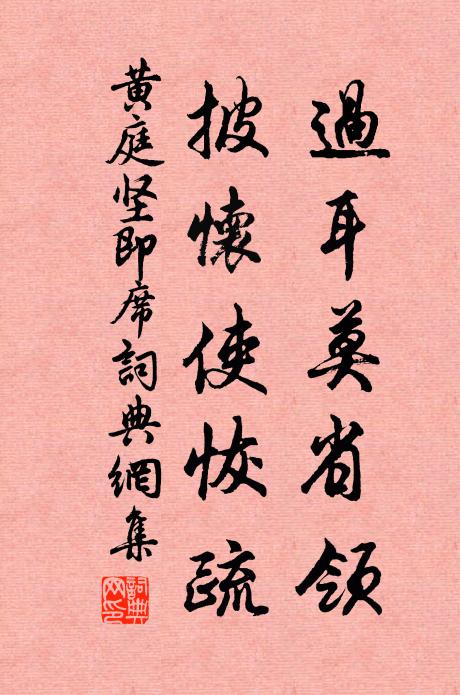 過耳莫省領
披懷使恢疏
黄庭坚即席詞典網集
詞典
网印